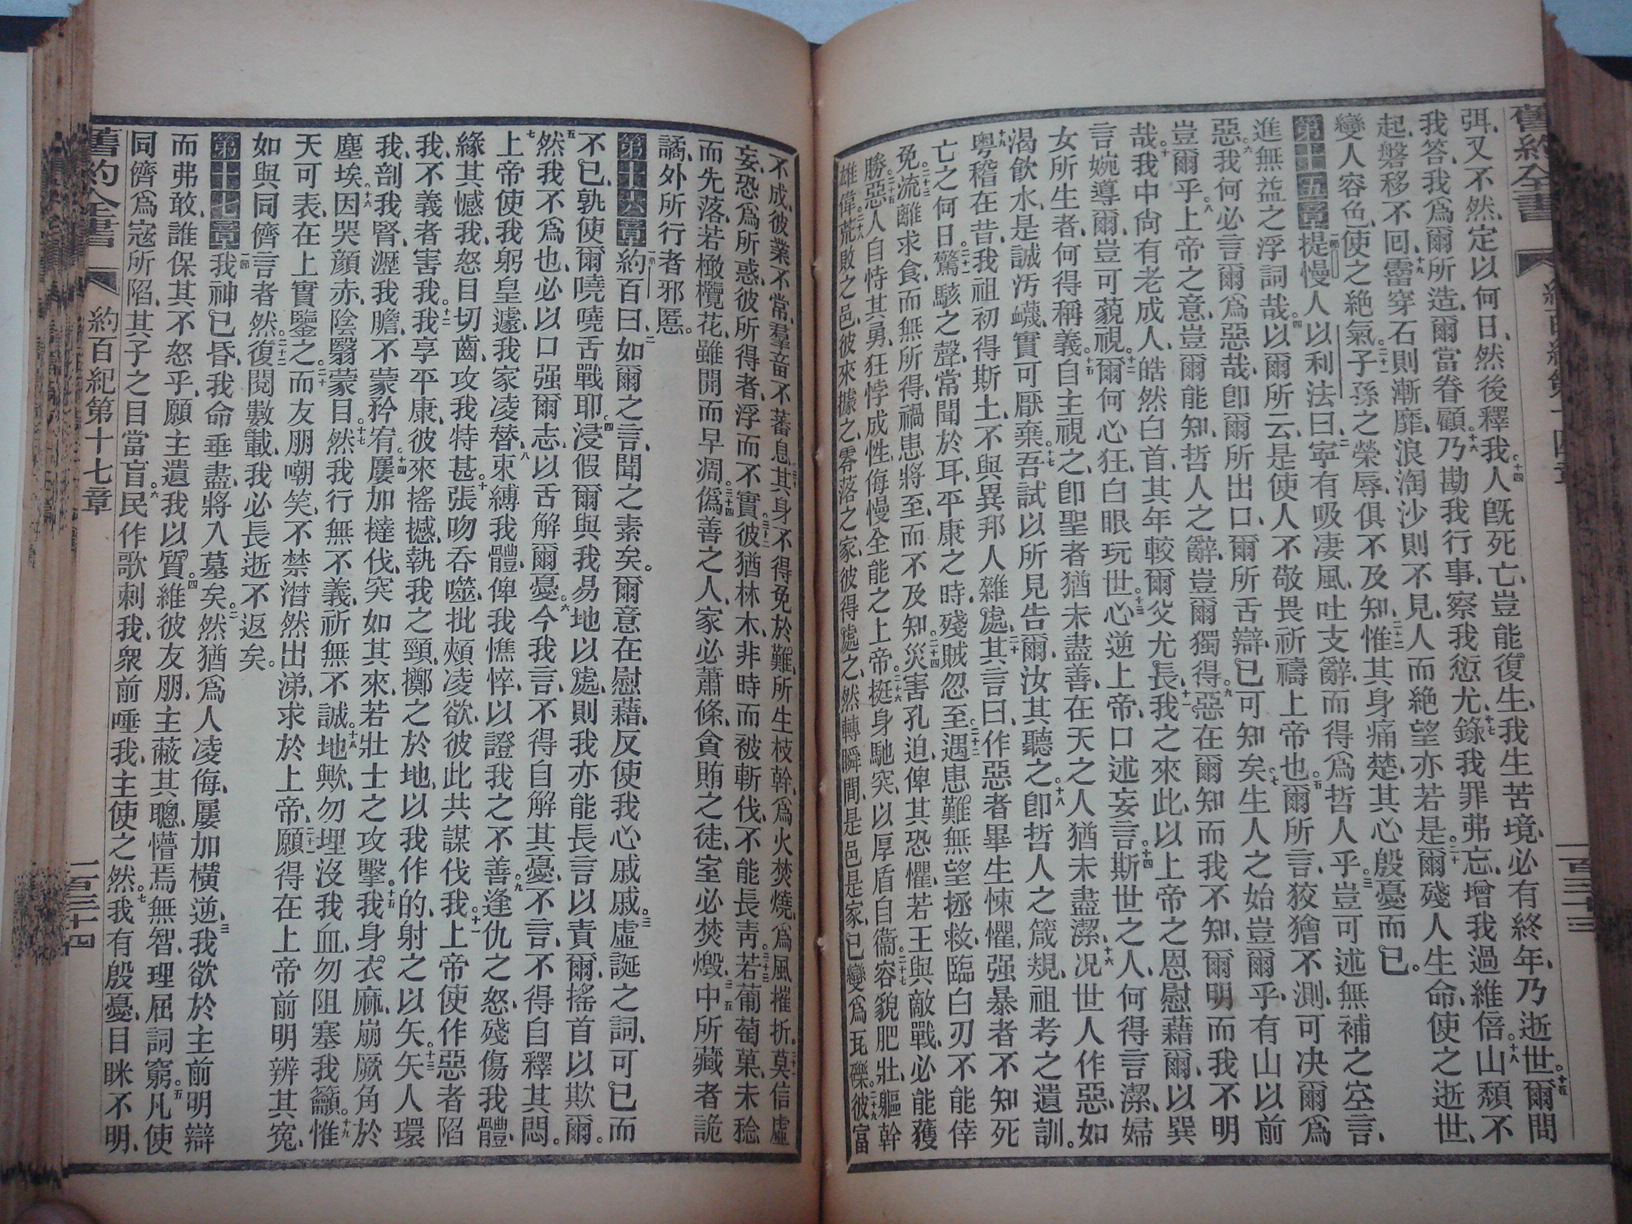 舊約全書
弭、又不然、定以何日、然後釋我、十四人旣死亡、豈能復生、我生苦境、必有終年、乃逝世。十五爾間
我答、我爲爾所造、爾當眷顧、十六乃勘我行事、察我愆尤、十七錄我罪弗忘、增我過維倍、十八山頹不
起、磐移不回、十九霤穿石則漸靡、浪淘沙則不見、人而絕望亦若是。二十爾殘人生命、使之逝世、
變人容色、使之絕氣、二十一子孫之榮辱、俱不及知、二十二惟其身痛楚、其心殷憂而已。
第十五章 一節提慢人以利法曰、二寧有吸凄風、吐支辭、而得爲哲人乎。三豈可述無補之空言、
進無益之浮詞哉。四以爾所云、是使人不敬畏祈禱上帝也。五爾所言狡獪不測、可决爾爲
惡、六我何必言爾爲惡哉、卽爾所出口、爾所舌辯、已可知矣。七生人之始、豈爾乎、有山以前、
豈爾乎。八上帝之意、豈爾能知、哲人之辭、豈爾獨得。九惡在爾知而我不知、爾明而我不明
哉。十我中尙有老成人、皓然白首、其年較爾父尤長、十一我之來此、以上帝之恩慰藉爾、以巽
言婉導爾、豈可藐視。十二爾何心狂、白眼玩世、十三心逆上帝、口述妄言。十四斯世之人、何得言潔、婦
女所生者、何得稱義。十五自主視之、卽聖者猶未盡善、在天之人猶未盡潔、十六况世人作惡、如
渴飲水、是誠汚衊、實可厭棄。十七吾試以所見告爾、汝其聽之。十八卽哲人之箴規、祖考之遺訓。
十九粵稽在昔、我祖初得斯土、不與異邦人雜處、二十其言曰、作惡者畢生悚懼、强暴者不知死
亡之何日。二十一驚駭之聲、常聞於耳、平康之時、殘賊忽至。二十二遇患難無望拯救、臨白刃不能倖
免。二十三流離求食、而無所得、禍患將至、而不及知。二十四災害孔迫、俾其恐懼、若王與敵戰、必能獲
勝。二十五惡人自恃其勇、狂悖成性、侮慢全能之上帝、二十六挺身馳突、以厚盾自衞。二十七容貌肥壯、軀幹
雄偉、二十八荒敗之邑、彼來據之、零落之家、彼得處之、然轉瞬間、是邑是家、已變爲瓦礫。二十九彼富
一百三十三
不成、彼業不常、羣畜不蕃息、三十其身不得免於難、所生枝幹、爲火焚燒、爲風摧折、三十一莫信虛
妄、恐爲所惑、彼所得者、浮而不實、三十二彼猶林木、非時而被斬伐、不能長靑。三十三若葡萄菓未稔
而先落、若橄欖花、雖開而早凋、三十四僞善之人、家必蕭條、貪賄之徒、室必焚燬、三十五中所藏者詭
譎、外所行者邪慝。
第十六章 一節約百曰、二如爾之言、聞之素矣。爾意在慰藉、反使我心戚戚。三虛誕之詞、可已而
不已、孰使爾嘵嘵舌戰耶。四浸假爾與我易地以處、則我亦能長言以責爾、搖首以欺爾。
五然我不爲也、必以口强爾志、以舌解爾憂。六今我言、不得自解其憂、不言、不得自釋其悶。
七上帝使我躬皇遽、我家凌替、八束縛我體、俾我憔悴、以證我之不善、九逢仇之怒、殘傷我體、
緣其憾我、怒目切齒、攻我特甚。十張吻吞噬、批頰凌欲、彼此共謀伐我。十一上帝使作惡者陷
我、不義者害我。十二我享平康、彼來搖撼、執我之頸、擲之於地、以我作的、射之以矢、十三矢人環
我、剖我腎、瀝我膽、不蒙矜宥、十四屢加撻伐、突如其來、若壯士之攻擊。十五我身衣麻、崩厥角於
塵埃、十六因哭顏赤、陰翳蒙目、十七然我行無不義、祈無不誠、十八地歟、勿埋沒我血、勿阻塞我籲。十九惟
天可表、在上實鑒之。二十而友朋嘲笑、不禁潸然出涕、求於上帝、二十一願得在上帝前、明辨其寃、
如與同儕言者然。二十二復閱數載、我必長逝不返矣。
第十七章 一節我神已昏、我命垂盡、將入墓矣。二然猶爲人凌侮、屢加橫逆、三我欲於主前明辯
而弗敢、誰保其不怒乎、願主遺我以質。四維彼友朋、主蔽其聰、懵焉無智、理屈詞窮。五凡使
同儕爲寇所陷、其子之目當盲。六民作歌刺我、衆前唾我、主使之然。七我有殷憂、目眯不明、
舊約全書
約百紀第十七章
一百三十四